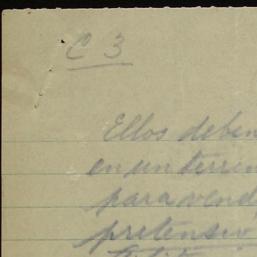 C 3
Ellos deben
en un terren
para vend
pretensio